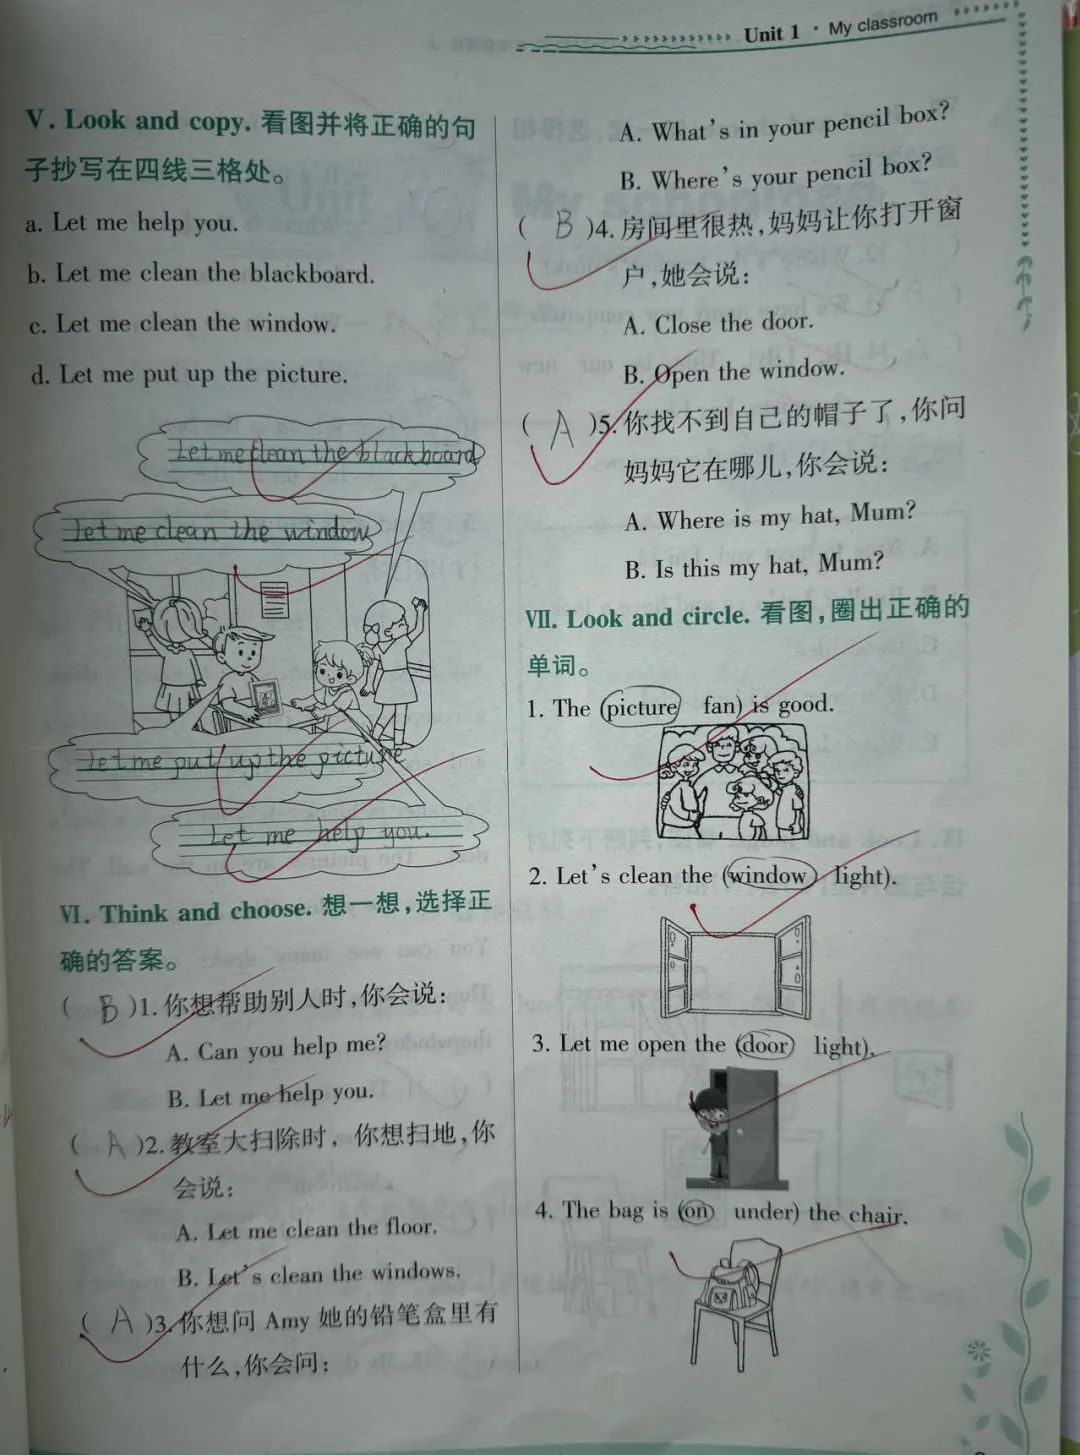 Unit 1 · My classroom
Ⅴ. Look and copy. 看图并将正确的句
子抄写在四线三格处。
a. Let me help you.
b. Let me clean the blackboard.
c. Let me clean the window.
d. Let me put up the picture.
Let me clean the blackboard
Let me clean the window
Let me put up the picture
Let me help you.
Ⅵ. Think and choose. 想一想,选择正
确的答案。
( B )1. 你想帮助别人时,你会说:
A. Can you help me?
B. Let me help you.
( A )2. 教室大扫除时, 你想扫地,你
会说:
A. Let me clean the floor.
B. Let's clean the windows.
( A )3. 你想问 Amy 她的铅笔盒里有
什么,你会问:
A. What's in your pencil box?
B. Where's your pencil box?
( B )4. 房间里很热,妈妈让你打开窗
户,她会说:
A. Close the door.
B. Open the window.
( A )5. 你找不到自己的帽子了,你问
妈妈它在哪儿,你会说:
A. Where is my hat, Mum?
B. Is this my hat, Mum?
Ⅶ. Look and circle. 看图,圈出正确的
单词。
1. The (picture fan) is good.
2. Let's clean the (window light).
3. Let me open the (door light).
4. The bag is (on under) the chair.